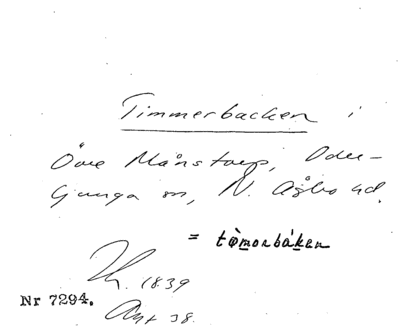 Timmerbacken i
Övre Månstorp, Oder-
ljunga sn, N. Åsbo hd.
= tòmorbáken
1839
Nr 7294.
38.